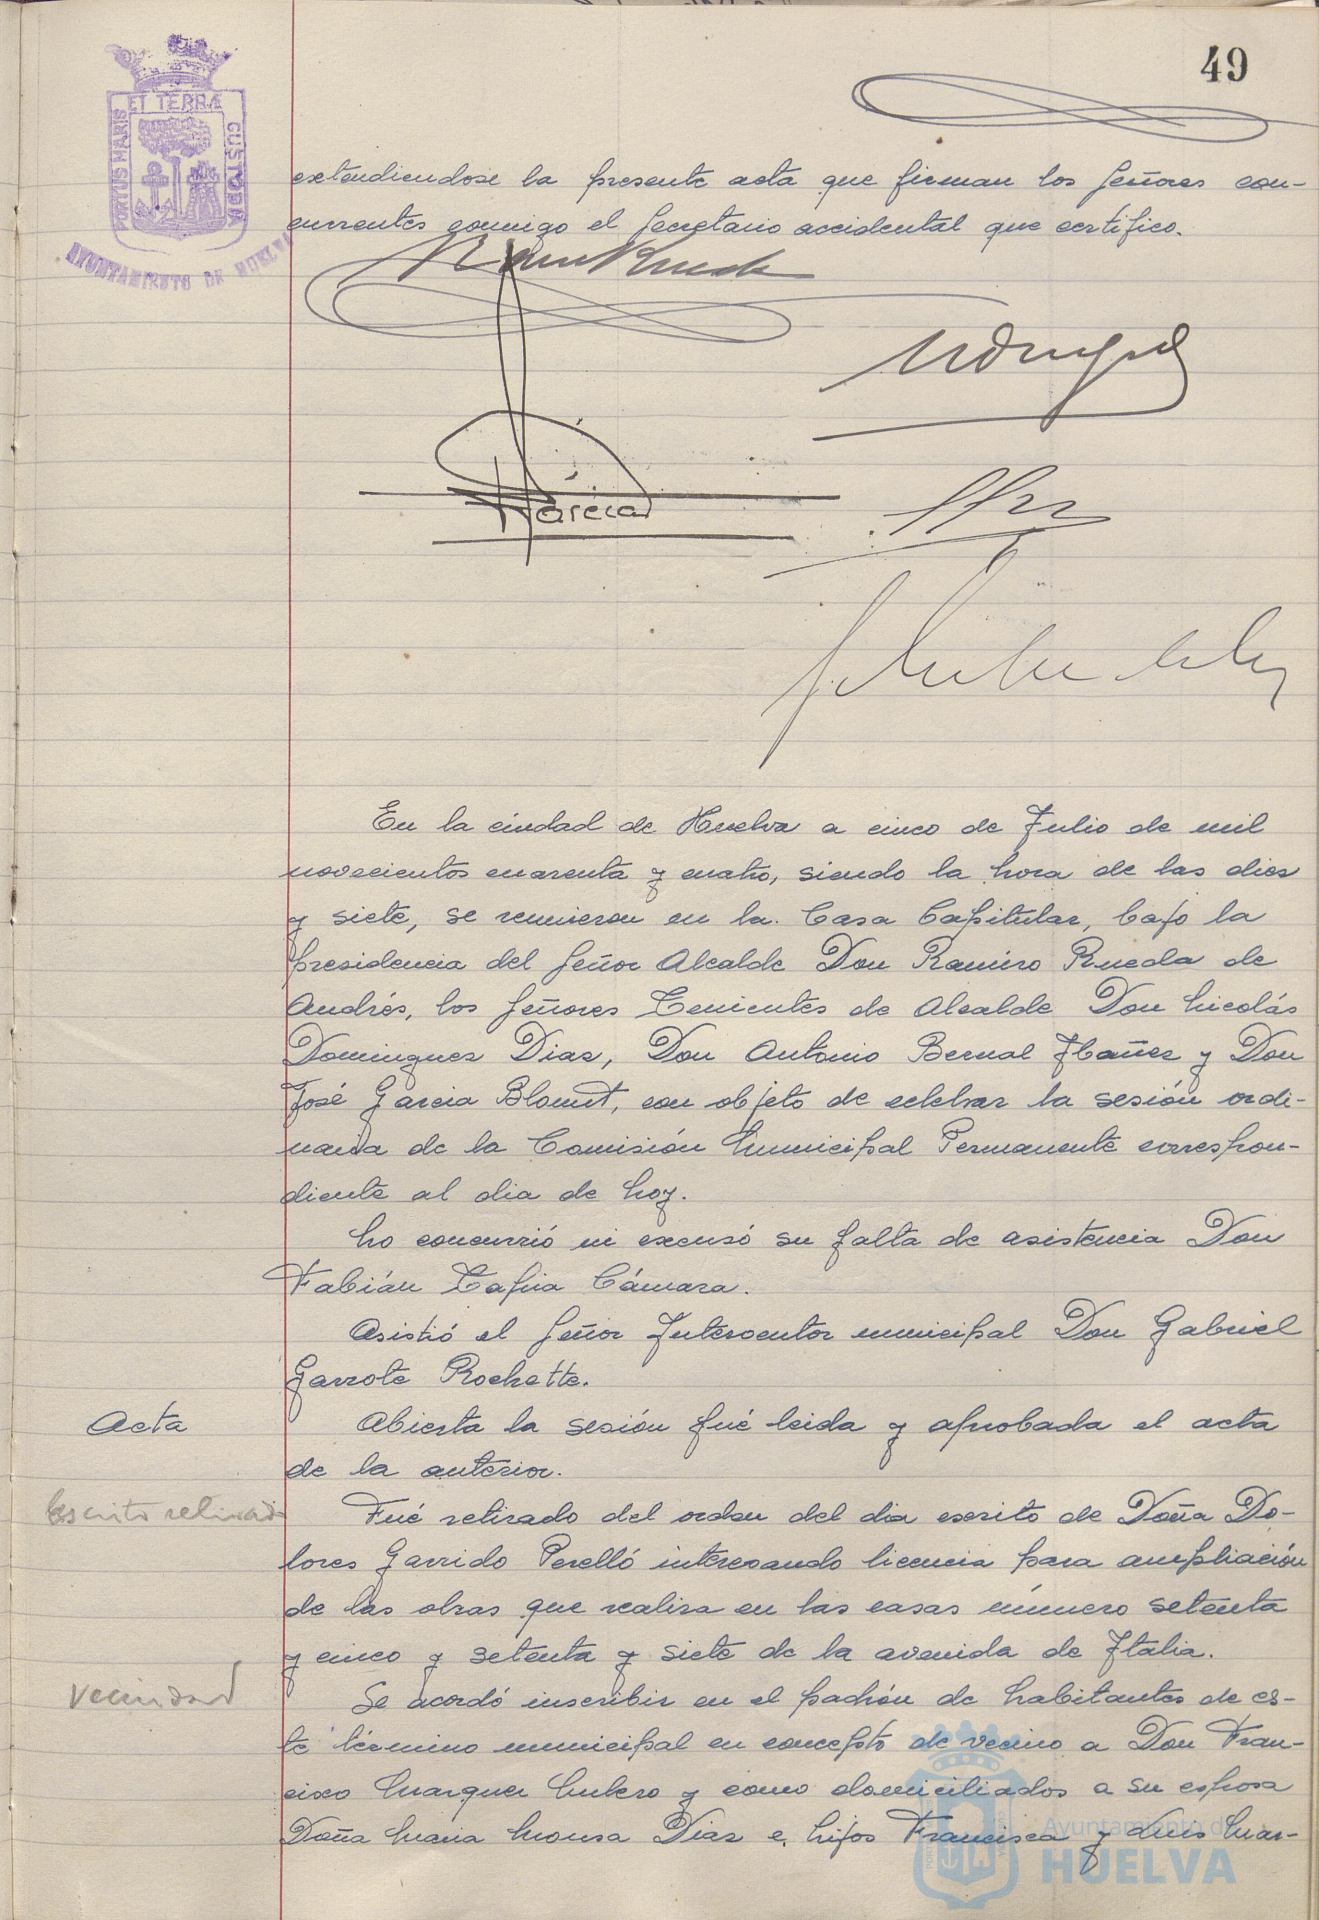 49
PORTUS MARIS ET TERRÆ CUSTODIA
AYUNTAMIENTO DE HUELVA
extendiendose la presente acta que firman los Señores con-
currentes conmigo el Secretario accidental que certifico.
Garcia
En la ciudad de Huelva a cinco de Julio de mil
novecientos cuarenta y cuatro, siendo la hora de las dies
y siete, se reunieron en la Casa Capitular, bajo la
presidencia del Señor Alcalde Don Ramiro Rueda de
Andrés, los Señores Tenientes de Alcalde Don Nicolás
Dominguez Diaz, Don Antonio Bernal Ibañez y Don
José Garcia Blount, con objeto de celebrar la sesión ordi-
naria de la Comisión Municipal Permanente correspon-
diente al dia de hoy.
No concurrió ni excusó su falta de asistencia Don
Fabián Tapia Cámara.
Asistió el Señor Interventor municipal Don Gabriel
Garrote Rochette.
Acta
Abierta la sesión fué leida y aprobada el acta
de la anterior.
Escrito retirado
Fué retirado del orden del dia escrito de Doña Do-
lores Garrido Perelló interesando licencia para ampliación
de las obras que realiza en las casas número setenta
y cinco y setenta y siete de la avenida de Italia.
Vecindad
Se acordó inscribir en el padrón de habitantes de es-
te término municipal en concepto de vecino a Don Fran-
cisco Marquez y como domiciliados a su esposa
Doña Maria Diaz e hijos Francisca y Luis Mar-
Ayuntamiento de
HUELVA